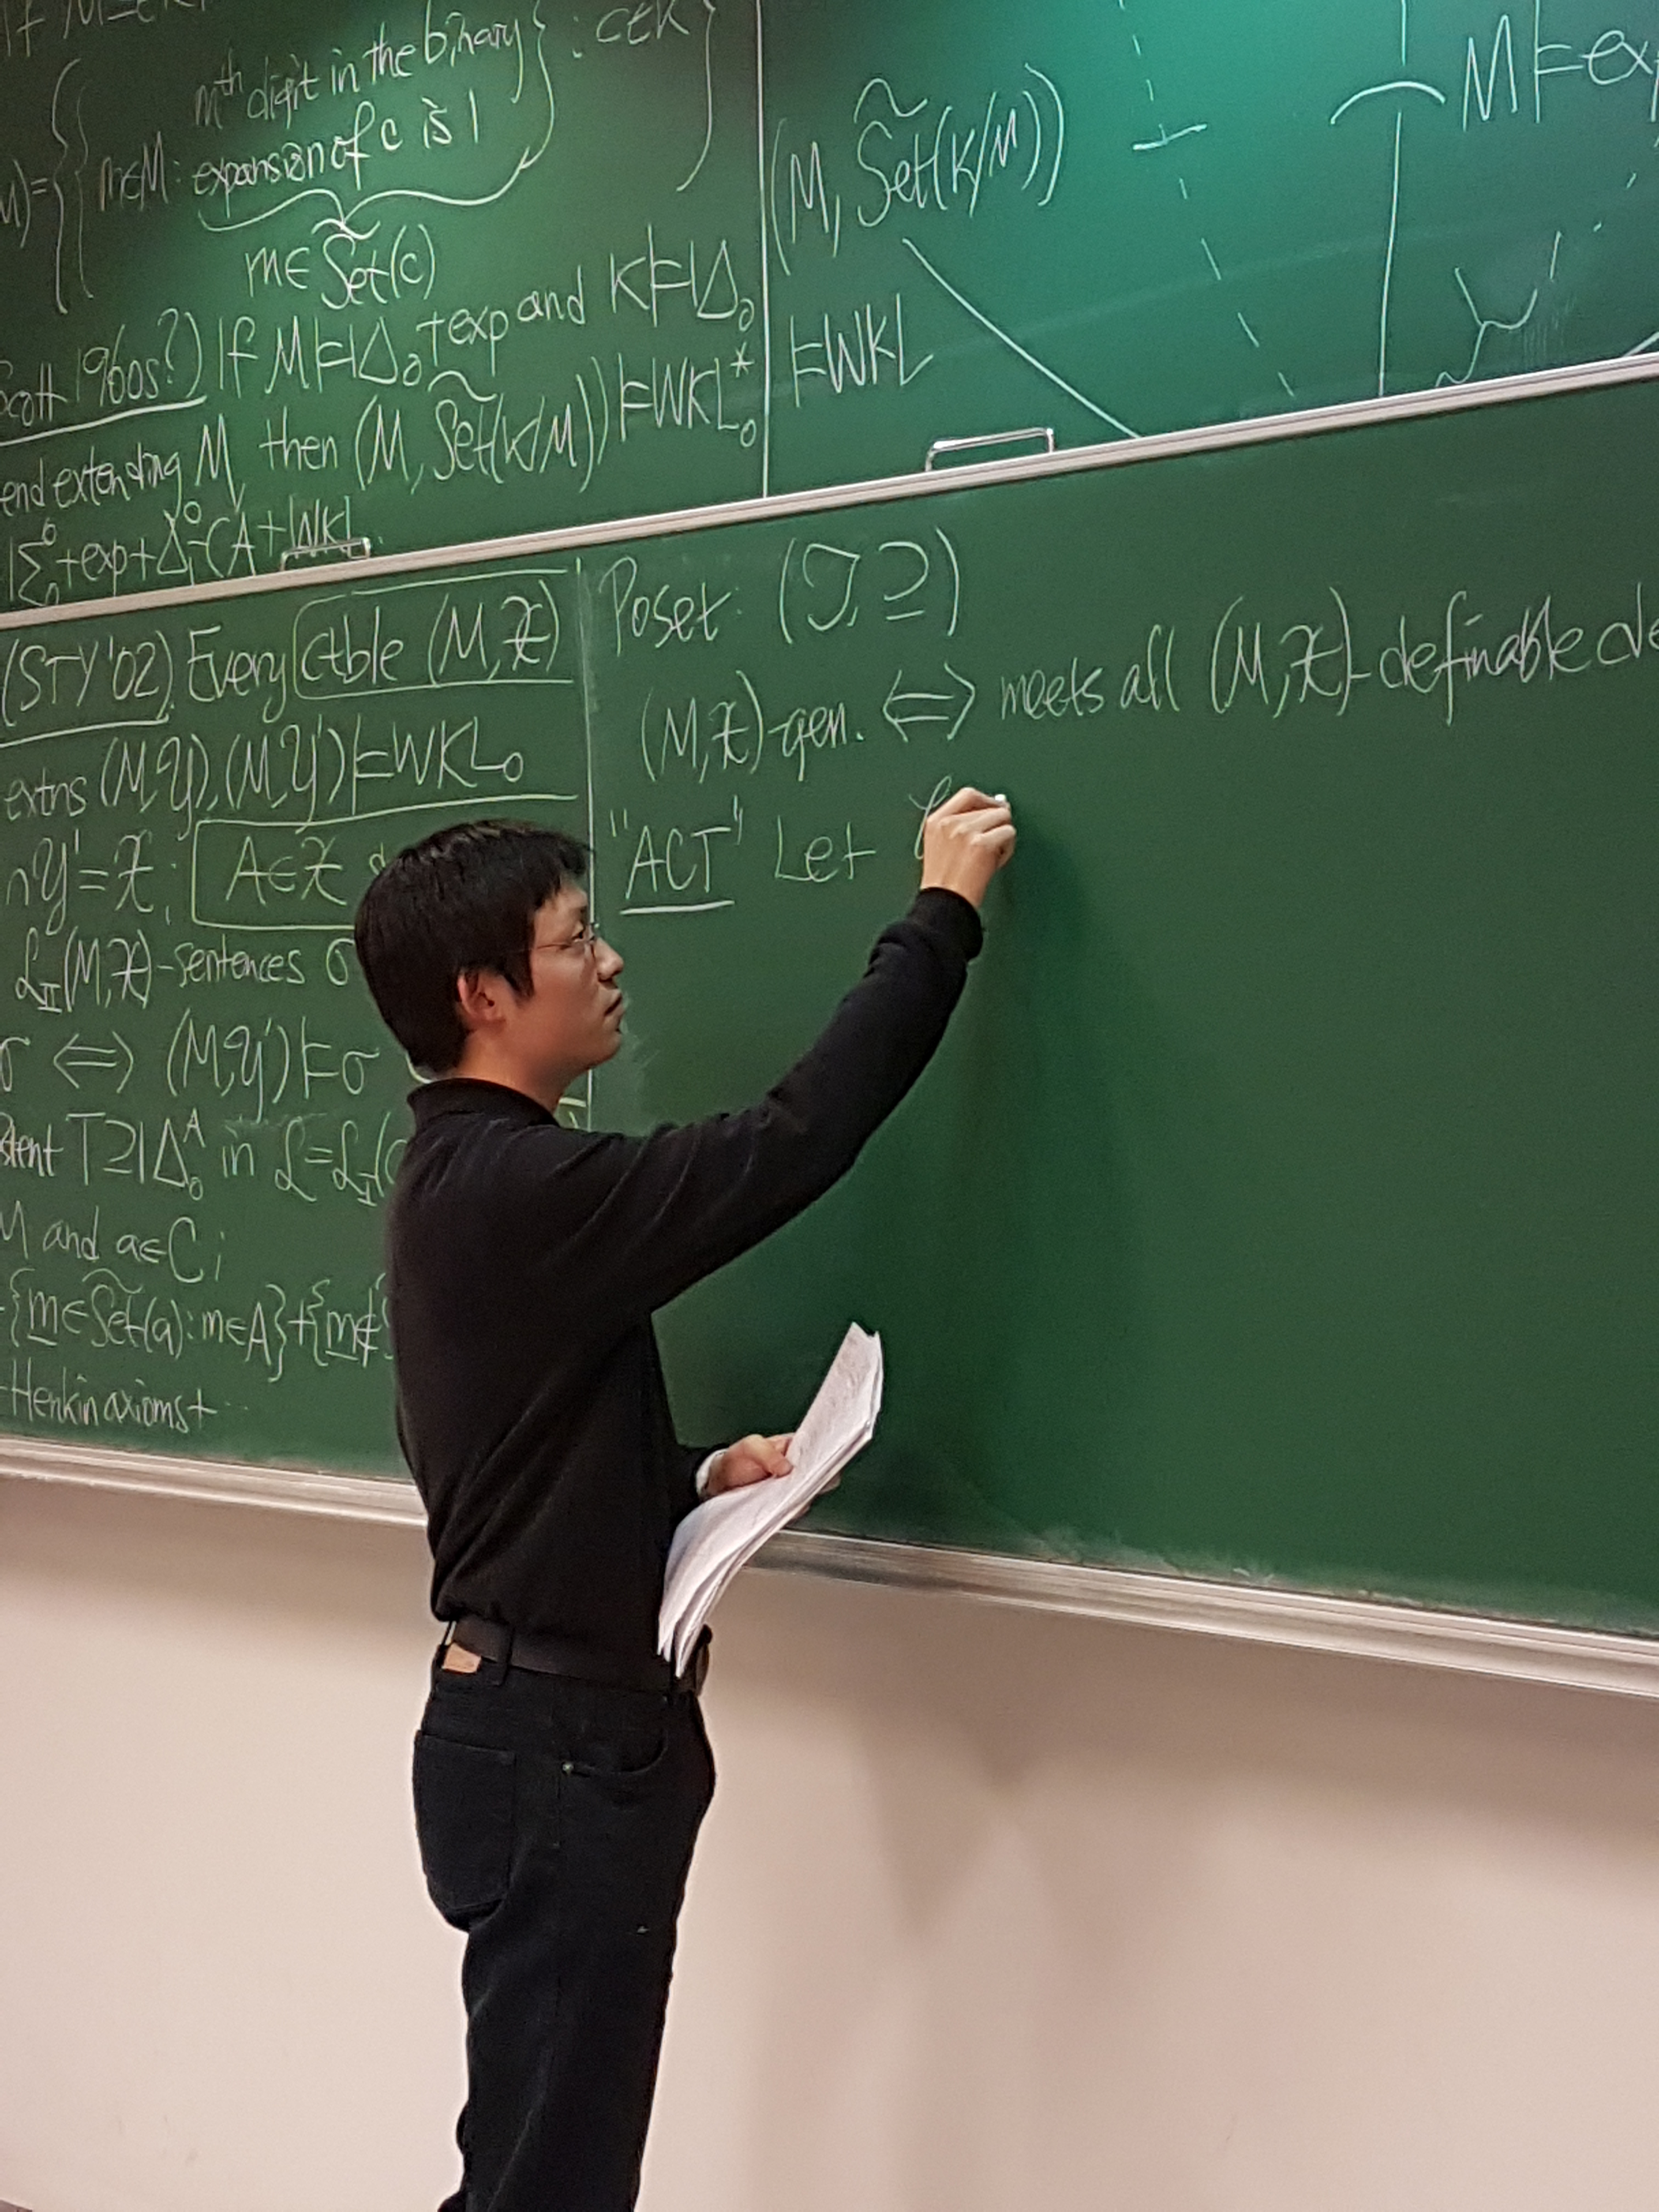 If M
mth digit in the binary
M)={{m∈M: expansion of c is 1}:c∈K}
m∈S̃et(c)
Scott 1960s?) If M⊨IΔ₀+exp and K⊨IΔ₀
end extending M, then (M, S̃et(K/M))⊨WKL₀*
IΣ₀⁰+exp+Δ₁⁰-CA+WKL.
(M, S̃et(K/M))
⊨WKL
M⊨exp
(STY'02) Every ctble (M,𝒳)
extns (M,𝒴),(M,𝒴')⊨WKL₀
∩𝒴'=𝒳; A∈𝒳
ℒ_II(M,𝒳)-sentences σ
σ ⇔ (M,𝒴')⊨σ
T⊇IΔ₀ᴬ in ℒ=ℒ_I(
M and a∈C;
{m∈S̃et(a):m∈A}+{m∉
Henkin axioms+...
Poset: (𝒯,⊇)
(M,𝒳)-gen. ⇔ meets all (M,𝒳)-definable de
"ACT" Let